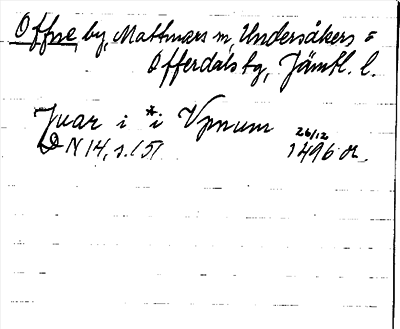 Offne by, Mattmars sn, Undersåkers o
Offerdals tg, Jämtl. l.
Juar i *i Vpnum 26/12
DN 14, s. 151 1496 or.